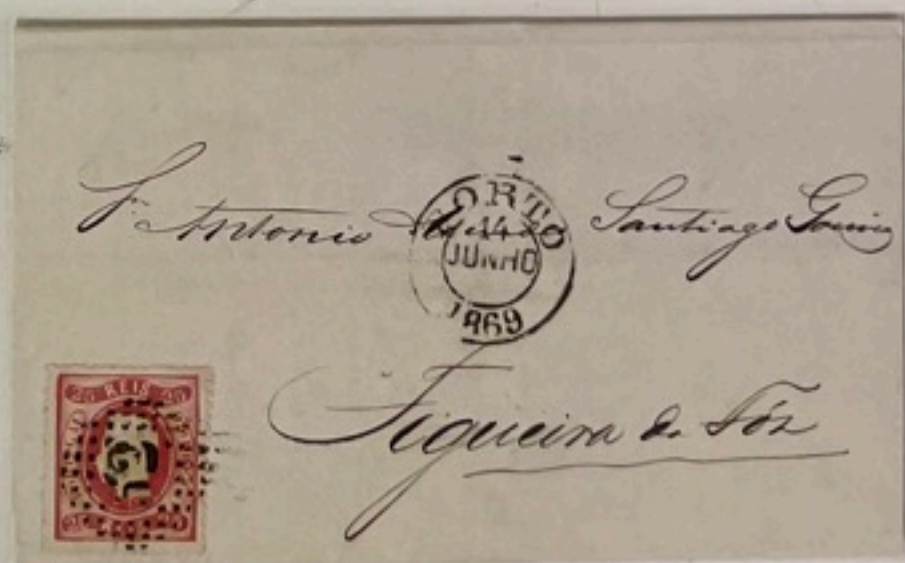 Sr. Antonio Santiago
PORTO
14
JUNHO
1869
Figueira da Fóz
25 REIS 25